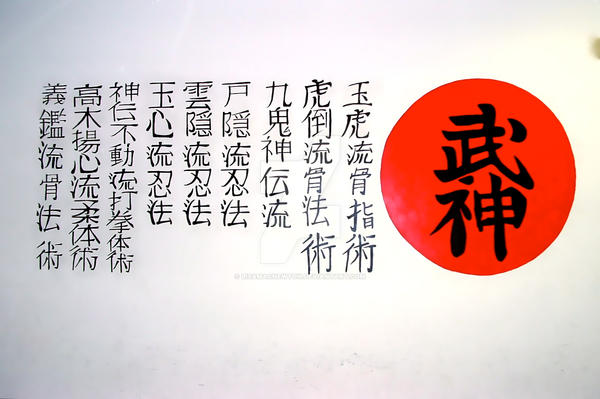 武神
玉虎流骨指術
虎倒流骨法術
九鬼神伝流
戸隠流忍法
雲隠流忍法
玉心流忍法
神伝不動流打拳体術
高木揚心流柔体術
義鑑流骨法術